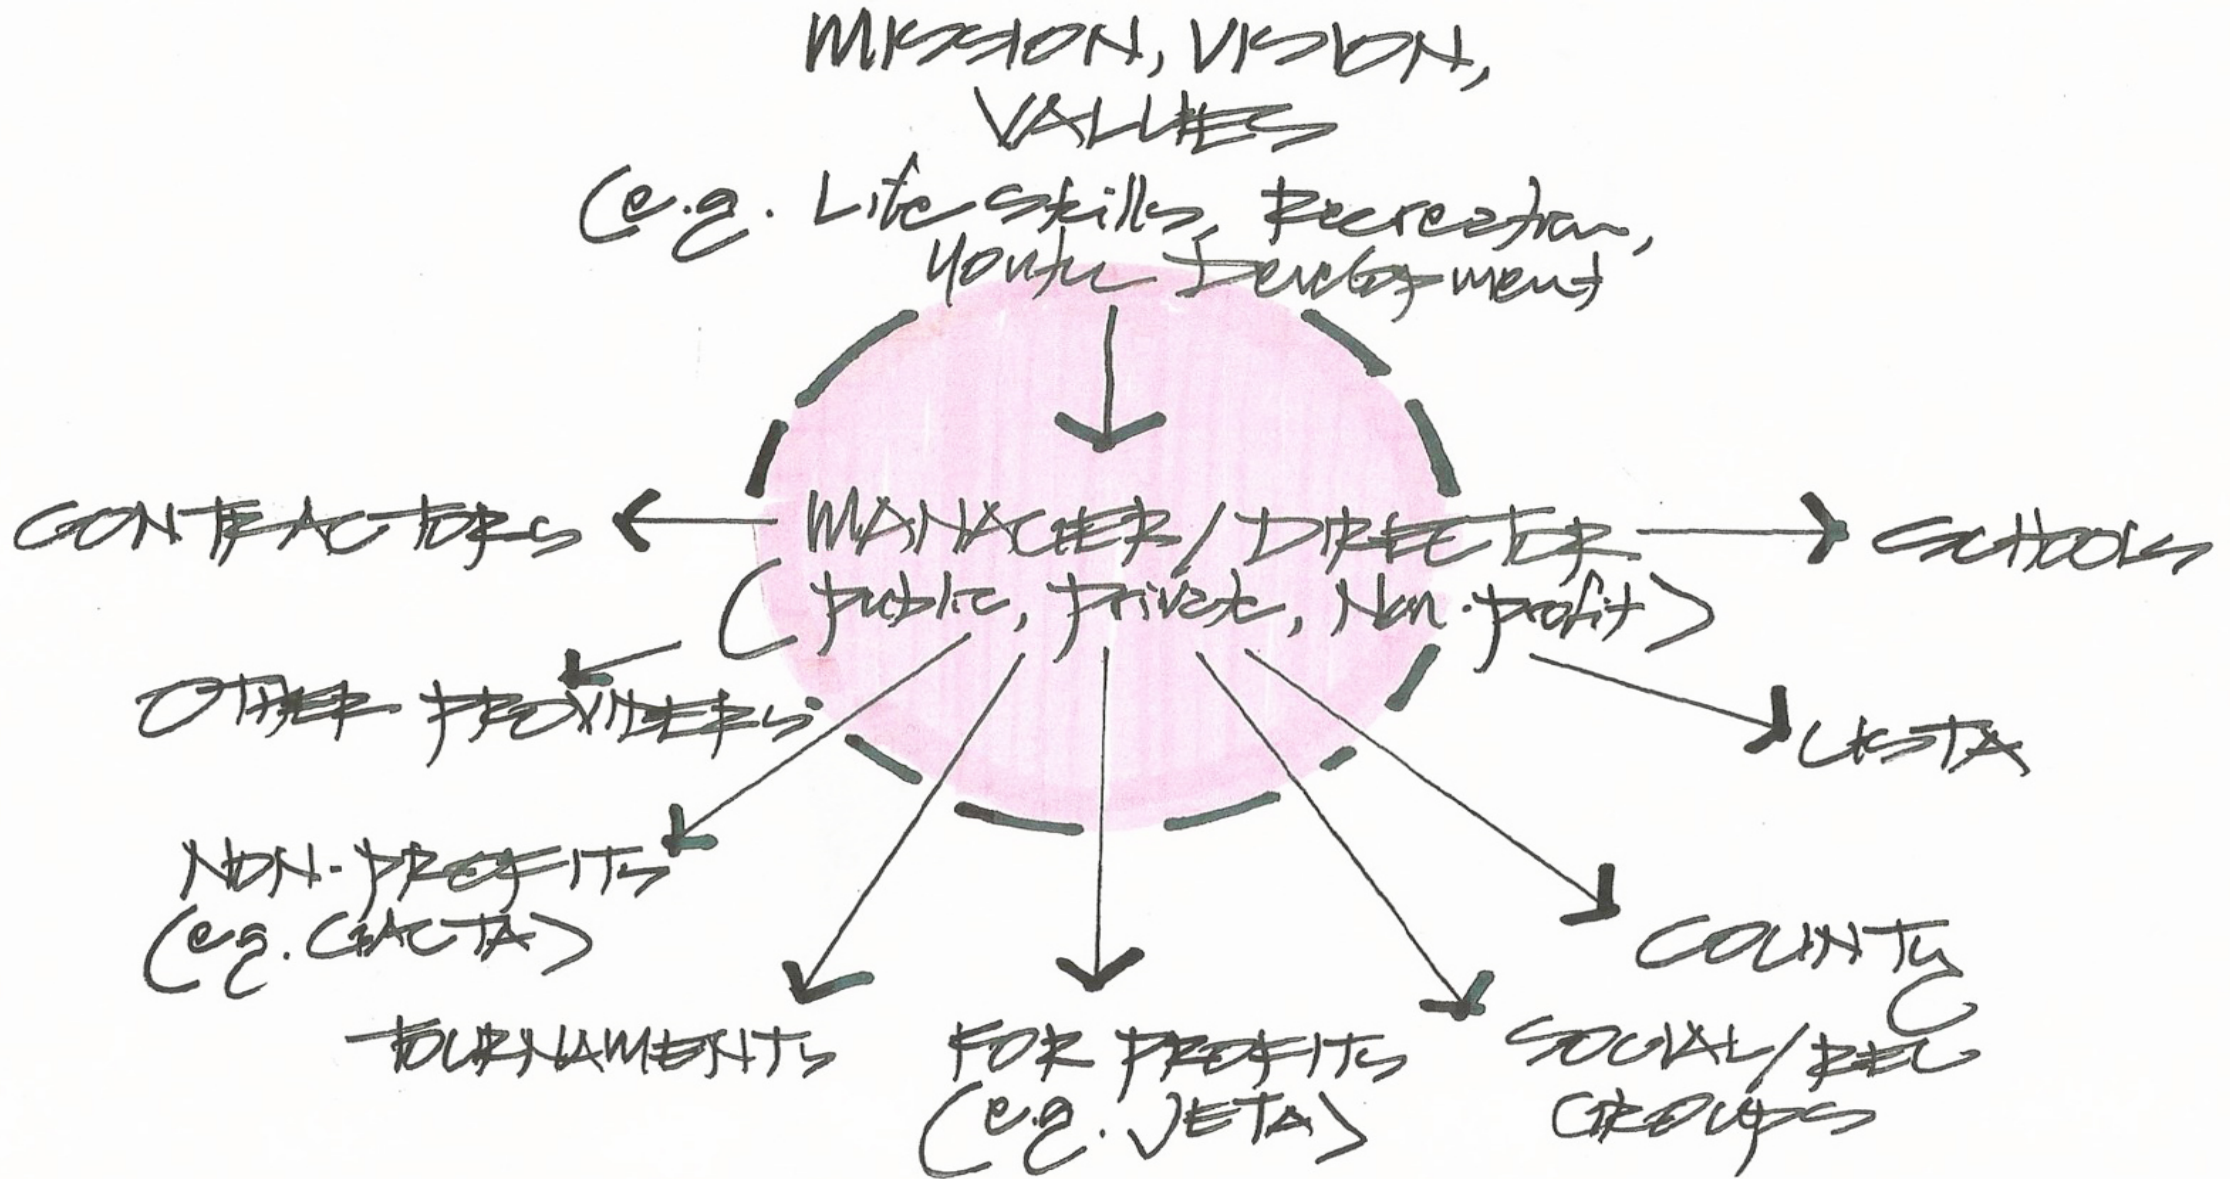 MISSION, VISION,
VALUES
(e.g. Life Skills, Recreation,
Youth Development
CONTRACTORS
MANAGER/DIRECTOR
SCHOOLS
(public, private, Non-profit)
OTHER PROVIDERS
USTA
NON-PROFITS
(e.g. GACTA)
COUNTY
TOURNAMENTS
FOR PROFITS
(e.g. JETA)
SOCIAL/REC
GROUPS